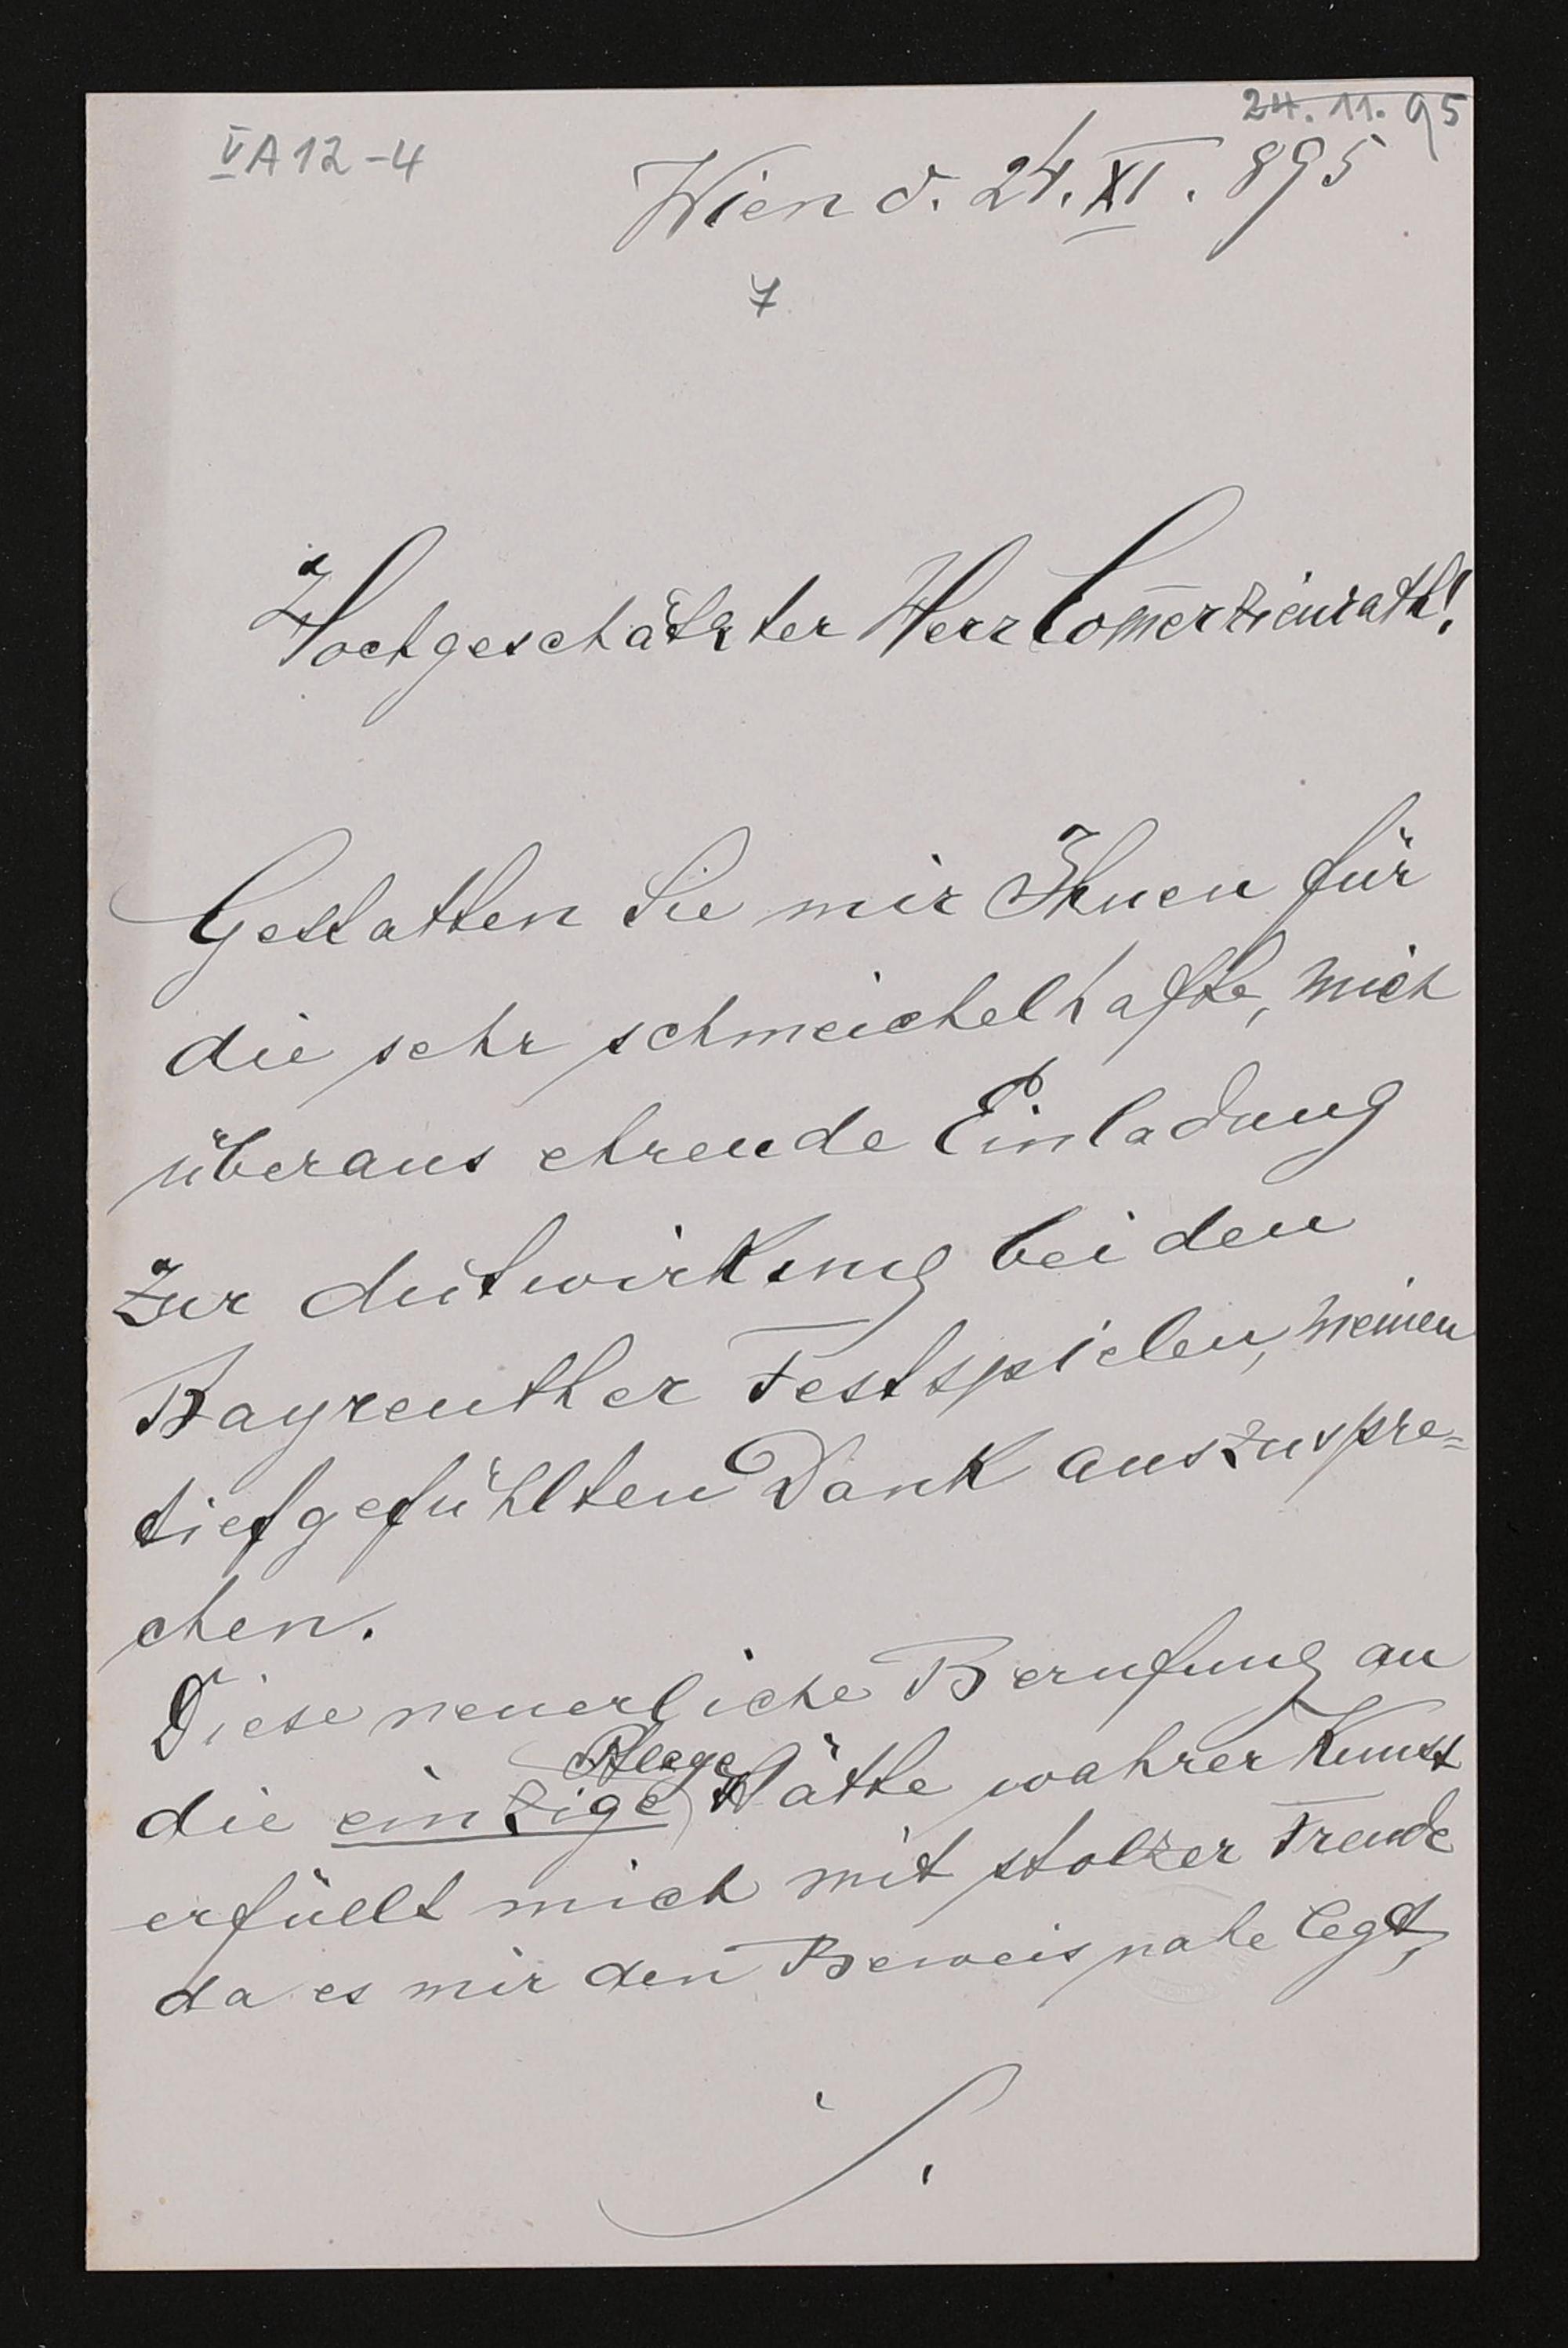 24. 11. 95
VA12-4
Wien d. 24. XI. 895
7
Hochgeschätzter Herr Com̄erzienrath!
Gestatten Sie mir Ihnen für
die sehr schmeichelhafte, mich
überaus ehrende Einladung
zur Mitwirkung bei den
Bayreuther Festspielen, meinen
tiefgefühlten Dank auszuspre=
chen.
Diese neuerliche Berufung an
Pflege
die einzige Stätte wahrer Kunst
erfüllt mich mit stolzer Freude
da es mir den Beweis nahe legt,